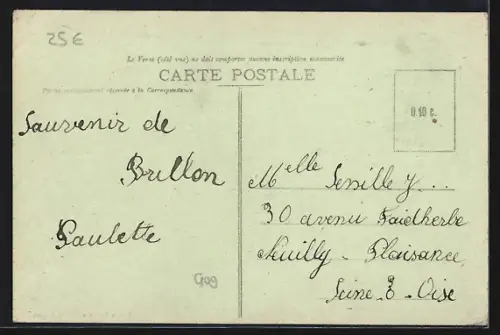 25€
Le Verso (côté vue) ne doit comporter aucune inscription manuscrite
CARTE POSTALE
Partie exclusivement réservée à la Correspondance.
0.10 c.
Sauvenir de
Brillon
Paulette
Melle
30 avenu Faidherbe
Neuilly - Plaisance
Seine - E - Oise